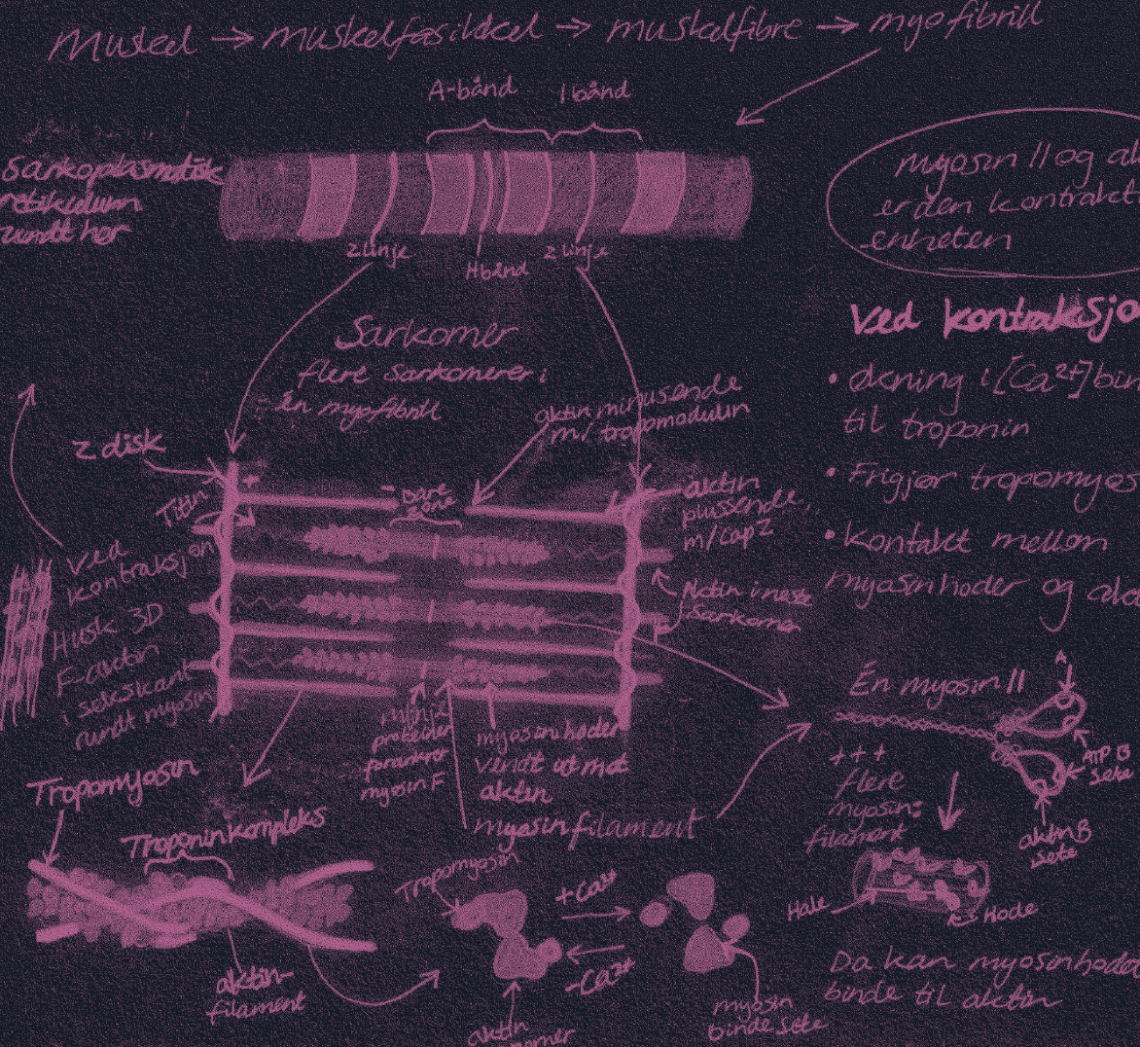 Muskel → muskelfasikkel → muskelfibre → myofibrill
A-bånd
I bånd
Sarkoplasmatisk
retikulum
rundt her
Z linje
H bånd
Z linje
myosin II og
er den
enheten
Sarkomer
flere sarkomerer i
én myofibrill
Ved
• økning i [Ca²⁺]
til troponin
• Frigjør
• Kontakt mellom
myosinhoder og
Z disk
Titin
+
-
Bare
zone
aktin minusende
m/ tropomodulin
aktin
plussende
m/capZ
Aktin i neste
sarkomer
Ved
kontraksjon
Husk 3D
F-actin
i sekskant
rundt myosin
M linje
proteiner
forankrer
myosin F
myosinhoder
vendt ut mot
aktin
myosinfilament
Én myosin II
A
ATP B
sete
aktin B
sete
+++
flere
myosin:
filament
Hale
Hode
Da kan
binde til aktin
Tropomyosin
Troponinkompleks
aktin-
filament
Tropomyosin
+Ca²⁺
-Ca²⁺
aktin
myosin
binde sete